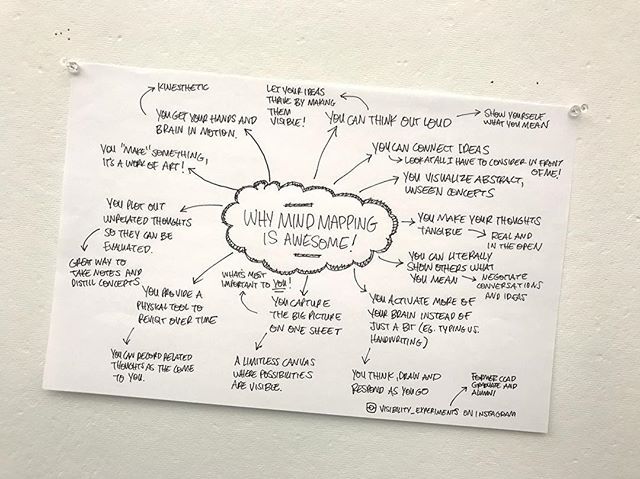 KINESTHETIC
YOU GET YOUR HANDS AND
BRAIN IN MOTION.
LET YOUR IDEAS
THRIVE BY MAKING
THEM
VISIBLE!
YOU CAN THINK OUT LOUD
SHOW YOURSELF
WHAT YOU MEAN
YOU "MAKE" SOMETHING,
IT'S A WORK OF ART!
YOU CAN CONNECT IDEAS
LOOK AT ALL I HAVE TO CONSIDER IN FRONT
OF ME!
YOU VISUALIZE ABSTRACT,
UNSEEN CONCEPTS
WHY MIND MAPPING
IS AWESOME!
YOU PLOT OUT
UNRELATED THOUGHTS
SO THEY CAN BE
EVALUATED.
GREAT WAY TO
TAKE NOTES AND
DISTILL CONCEPTS
YOU MAKE YOUR THOUGHTS
TANGIBLE
REAL AND
IN THE OPEN
YOU CAN LITERALLY
SHOW OTHERS WHAT
YOU MEAN
NEGOTIATE
CONVERSATIONS
AND IDEAS
YOU PROVIDE A
PHYSICAL TOOL TO
REVISIT OVER TIME
YOU CAN RECORD RELATED
THOUGHTS AS THE COME
TO YOU.
WHAT'S MOST
IMPORTANT TO YOU!
YOU CAPTURE
THE BIG PICTURE
ON ONE SHEET
A LIMITLESS CANVAS
WHERE POSSIBILITIES
ARE VISIBLE.
YOU ACTIVATE MORE OF
YOUR BRAIN INSTEAD OF
JUST A BIT (EG. TYPING VS.
HANDWRITING)
YOU THINK, DRAW AND
RESPOND AS YOU GO
FORMER CCAD
GRADUATE AND
ALUMNI
VISIBILITY_EXPERIMENTS ON INSTAGRAM